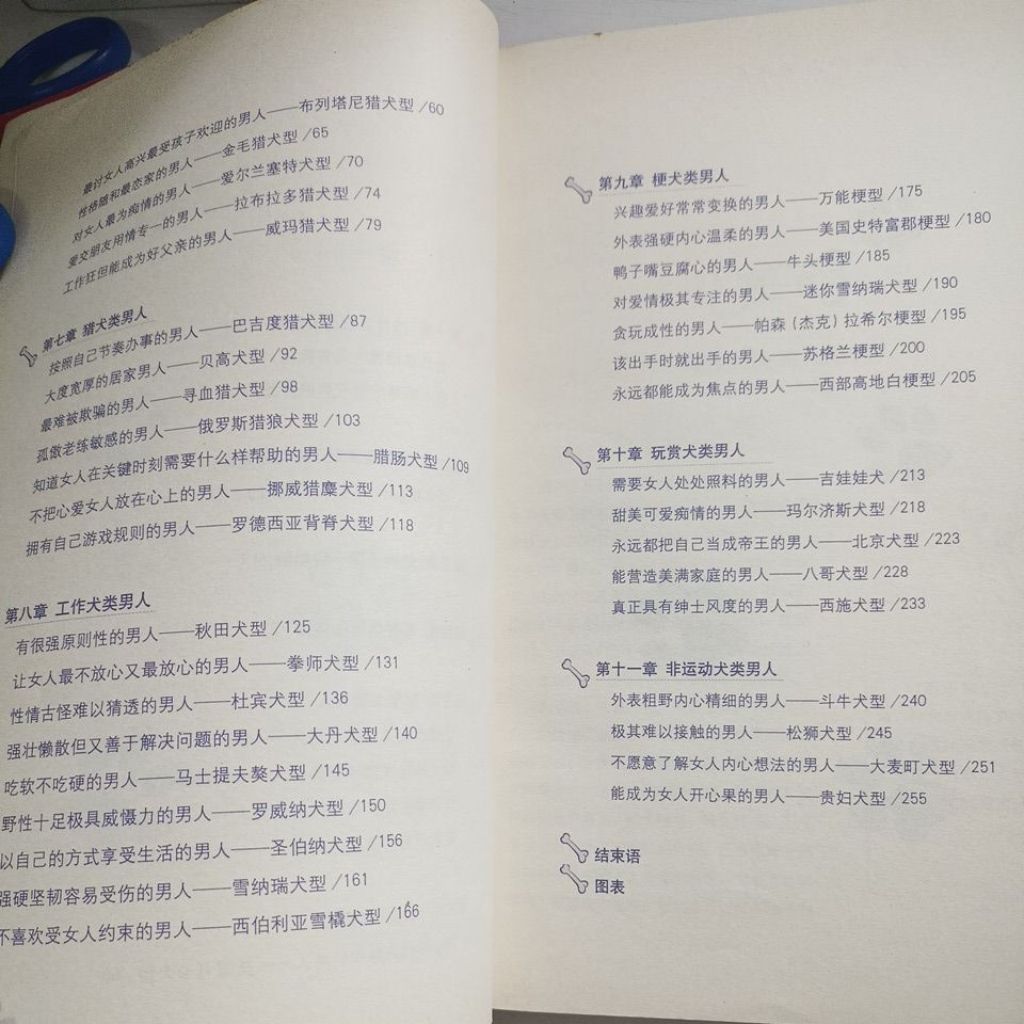 最讨女人高兴最受孩子欢迎的男人——布列塔尼猎犬型 /60
性格随和最恋家的男人——金毛猎犬型 /65
对女人最为痴情的男人——爱尔兰塞特犬型 /70
爱交朋友用情专一的男人——拉布拉多猎犬型 /74
工作狂但能成为好父亲的男人——威玛猎犬型 /79
第七章 猎犬类男人
按照自己节奏办事的男人——巴吉度猎犬型 /87
大度宽厚的居家男人——贝高犬型 /92
最难被欺骗的男人——寻血猎犬型 /98
孤傲老练敏感的男人——俄罗斯猎狼犬型 /103
知道女人在关键时刻需要什么样帮助的男人——腊肠犬型 /109
不把心爱女人放在心上的男人——挪威猎麋犬型 /113
拥有自己游戏规则的男人——罗德西亚背脊犬型 /118
第八章 工作犬类男人
有很强原则性的男人——秋田犬型 /125
让女人最不放心又最放心的男人——拳师犬型 /131
性情古怪难以猜透的男人——杜宾犬型 /136
强壮懒散但又善于解决问题的男人——大丹犬型 /140
吃软不吃硬的男人——马士提夫獒犬型 /145
野性十足极具威慑力的男人——罗威纳犬型 /150
以自己的方式享受生活的男人——圣伯纳犬型 /156
强硬坚韧容易受伤的男人——雪纳瑞犬型 /161
不喜欢受女人约束的男人——西伯利亚雪橇犬型 /166
第九章 梗犬类男人
兴趣爱好常常变换的男人——万能梗型 /175
外表强硬内心温柔的男人——美国史特富郡梗型 /180
鸭子嘴豆腐心的男人——牛头梗型 /185
对爱情极其专注的男人——迷你雪纳瑞犬型 /190
贪玩成性的男人——帕森(杰克)拉希尔梗型 /195
该出手时就出手的男人——苏格兰梗型 /200
永远都能成为焦点的男人——西部高地白梗型 /205
第十章 玩赏犬类男人
需要女人处处照料的男人——吉娃娃犬 /213
甜美可爱痴情的男人——玛尔济斯犬型 /218
永远都把自己当成帝王的男人——北京犬型 /223
能营造美满家庭的男人——八哥犬型 /228
真正具有绅士风度的男人——西施犬型 /233
第十一章 非运动犬类男人
外表粗野内心精细的男人——斗牛犬型 /240
极其难以接触的男人——松狮犬型 /245
不愿意了解女人内心想法的男人——大麦町犬型 /251
能成为女人开心果的男人——贵妇犬型 /255
结束语
图表